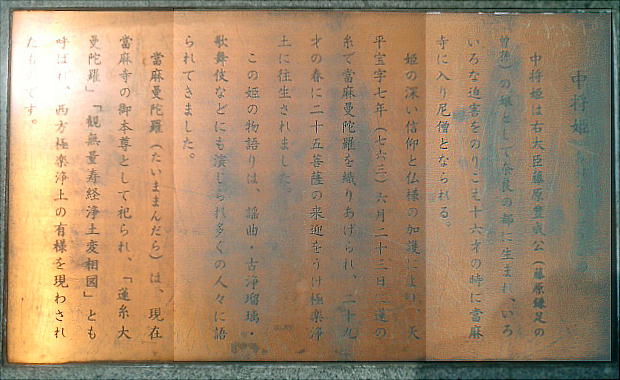 中将姫
中将姫は右大臣藤原豊成公(藤原鎌足の
曽孫)の娘として奈良の都に生まれ、いろ
いろな迫害をのりこえ十六才の時に當麻
寺に入り尼僧となられる。
姫の深い信仰と仏様の加護により、天
平宝字七年(七六三)六月二十三日に蓮の
糸で當麻曼陀羅を織りあげられ、二十九
才の春に二十五菩薩の来迎をうけ極楽浄
土に往生されました。
この姫の物語りは、謡曲・古浄瑠璃・
歌舞伎などにも演じられ多くの人々に語
られてきました。
當麻曼陀羅(たいままんだら)は、現在
當麻寺の御本尊として祀られ、「蓮糸大
曼陀羅」「観無量寿経浄土変相図」とも
呼ばれ、西方極楽浄土の有様を現わされ
たものです。